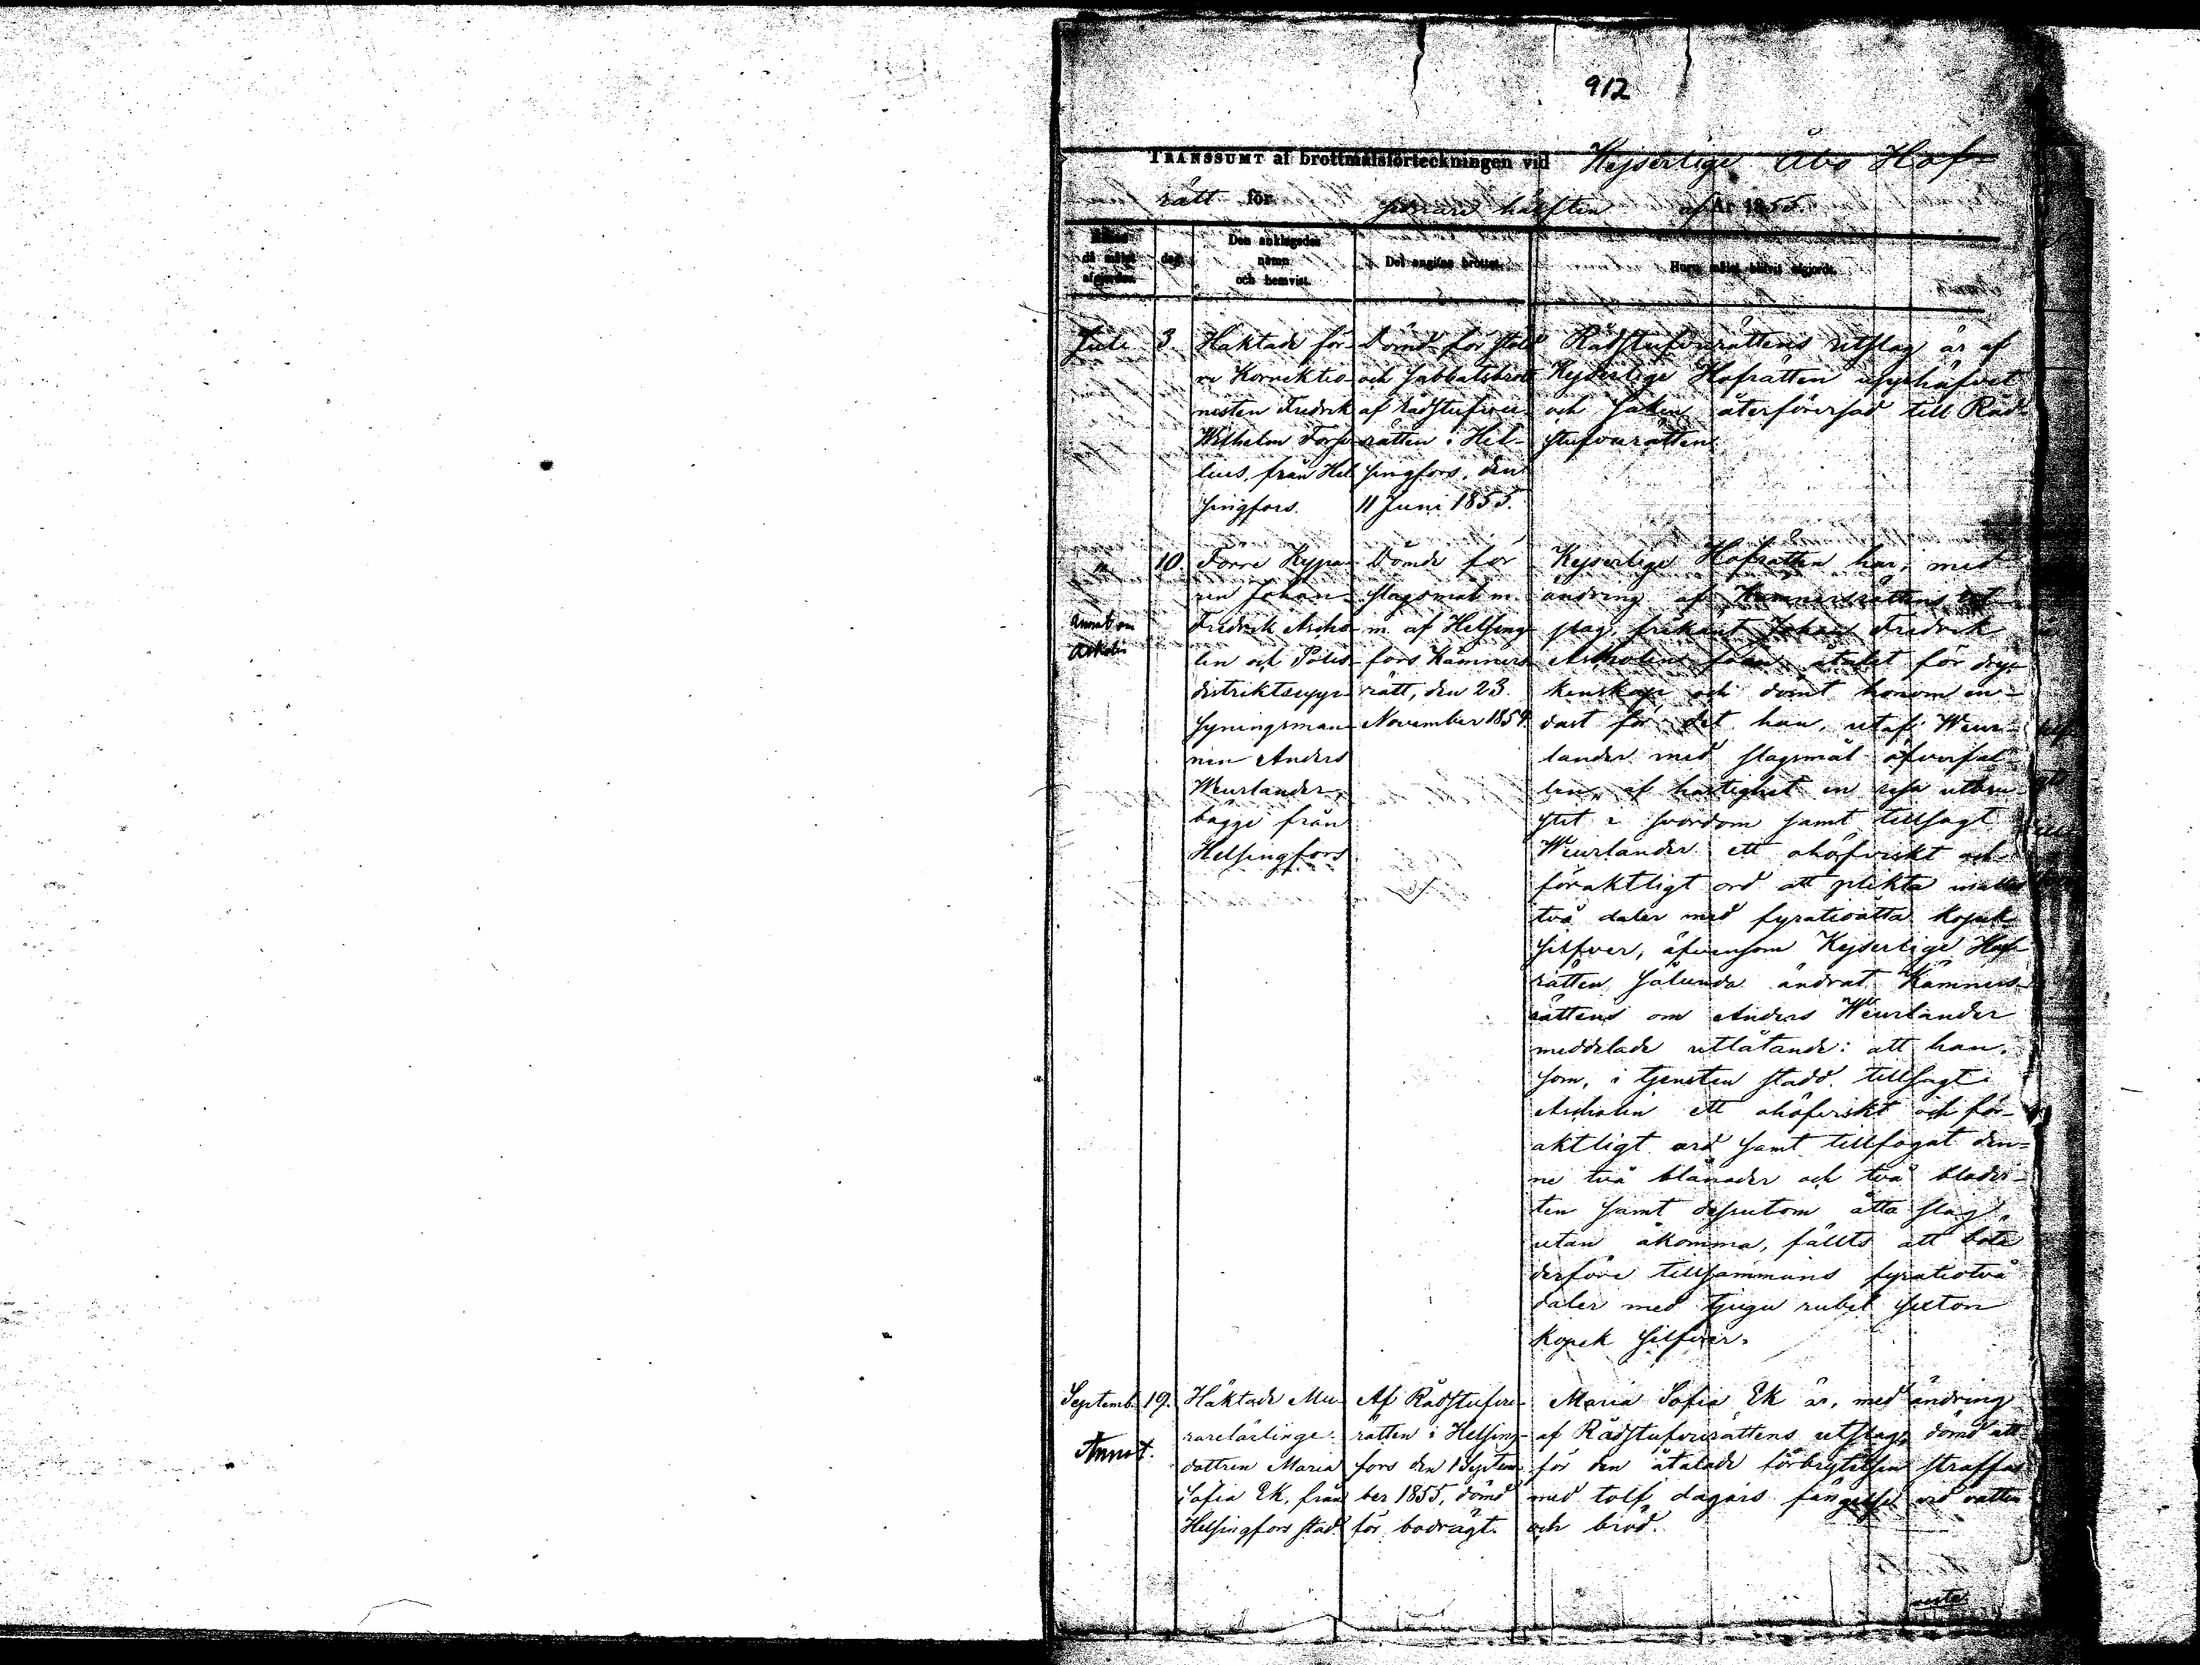 912
TRANSSUMT af brottmålsförteckningen vid Kejserlige Åbo Hof-
rätt för senare hälften af År 1855.
Månad
då målet
afgjordes.
dag.
Den anklagades
namn
och hemvist.
Det angifna brottet.
Huru målet blifvit afgjordt.
Juli 3.
Häktade för-
re Korrektio-
nisten Fredrik
Wilhelm Forse-
lius, från Hel
singfors.
Dömd för stöld
och sabbatsbrott
af Rådstufvu-
rätten i Hel-
singfors, den
11 Juni 1855.
Rådstufvurättens utslag är af
Kejserlige Hofrätten upphäfvet
och saken återförvisad till Råd-
stufvurätten.
" 10.
Annot om
Askolin
Förre Kypa-
ren Johan
Fredrik Ascho-
lin och Polis-
distriktsupp-
syningsman-
nen Anders
Weurlander,
bägge från
Helsingfors
Dömde för
slagsmål m.
m. af Helsing-
fors Kämners
rätt, den 23.
November 1854.
Kejserlige Hofrätten har, med
ändring af Kämnersrättens ut-
slag, frikänt Johan Fredrik
Ascholin från åtalet för dryc-
kenskap och dömt honom en-
dast för det han, utaf Weur-
lander med slagsmål öfverfal-
len, af hastighet en resa utbru-
stit i svordom samt tillsagt
Weurlander ett ohöfviskt och
föraktligt ord att plikta
två daler med fyratioåtta kopek
silfver, äfvensom Kejserlige Hof-
rätten sålunda ändrat Kämners-
rättens om Anders Weurlander
meddelade utlåtande: att han,
som, i tjensten stadd, tillsagt
Ascholin ett ohöfviskt och för-
aktligt ord samt tillfogat den-
ne två blånader och två blodvi-
ten samt dessutom åtta slag
utan åkomma, fällts att böta
derföre tillsammans fyratiotvå
daler med tjugu rubel sexton
kopek silfver.
Septemb. 19.
Annot.
Häktade Mu-
rarelärlinge-
dottren Maria
Sofia Ek, från
Helsingfors stad.
Af Rådstufvu-
rätten i Helsing-
fors den 1 Septem-
ber 1855, dömd
för bodrägt.
Maria Sofia Ek är, med ändring
af Rådstufvurättens utslag, dömd att
för den åtalade förbrytelsen straffas
med tolf dagars fängelse vid vatten
och bröd.